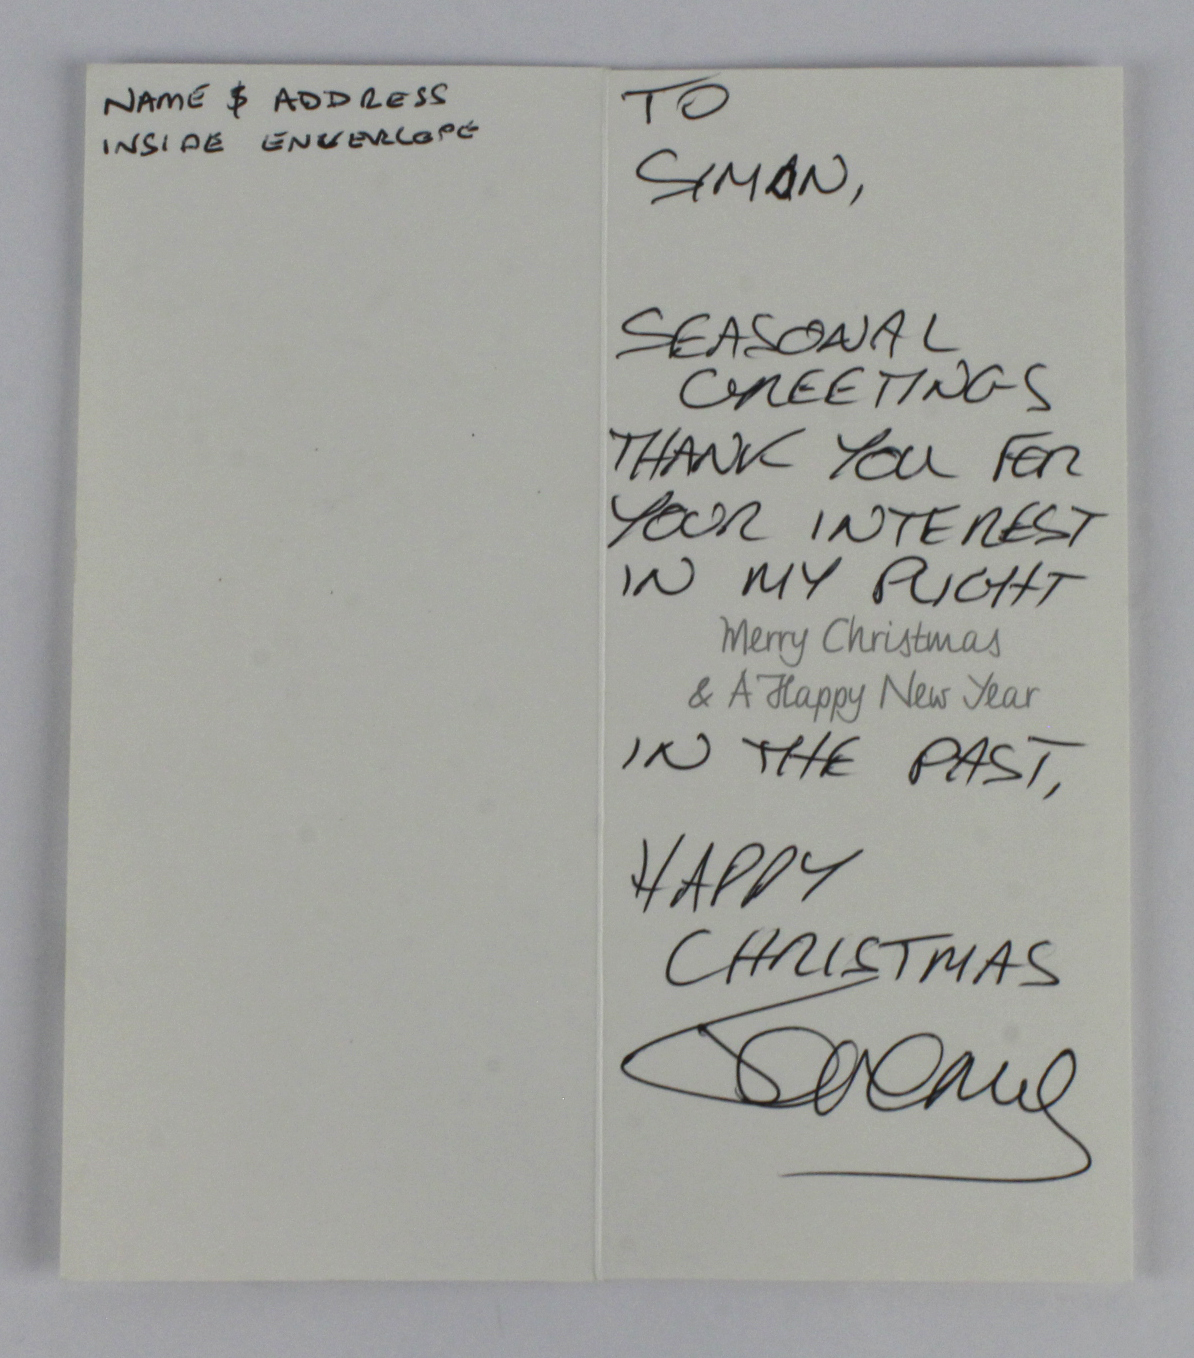 NAME & ADDRESS
INSIDE ENVERLOPE
TO
SIMON,
SEASONAL
GREETINGS
THANK YOU FOR
YOUR INTEREST
IN MY PLIGHT
Merry Christmas
& A Happy New Year
IN THE PAST,
HAPPY
CHRISTMAS
Jeremy